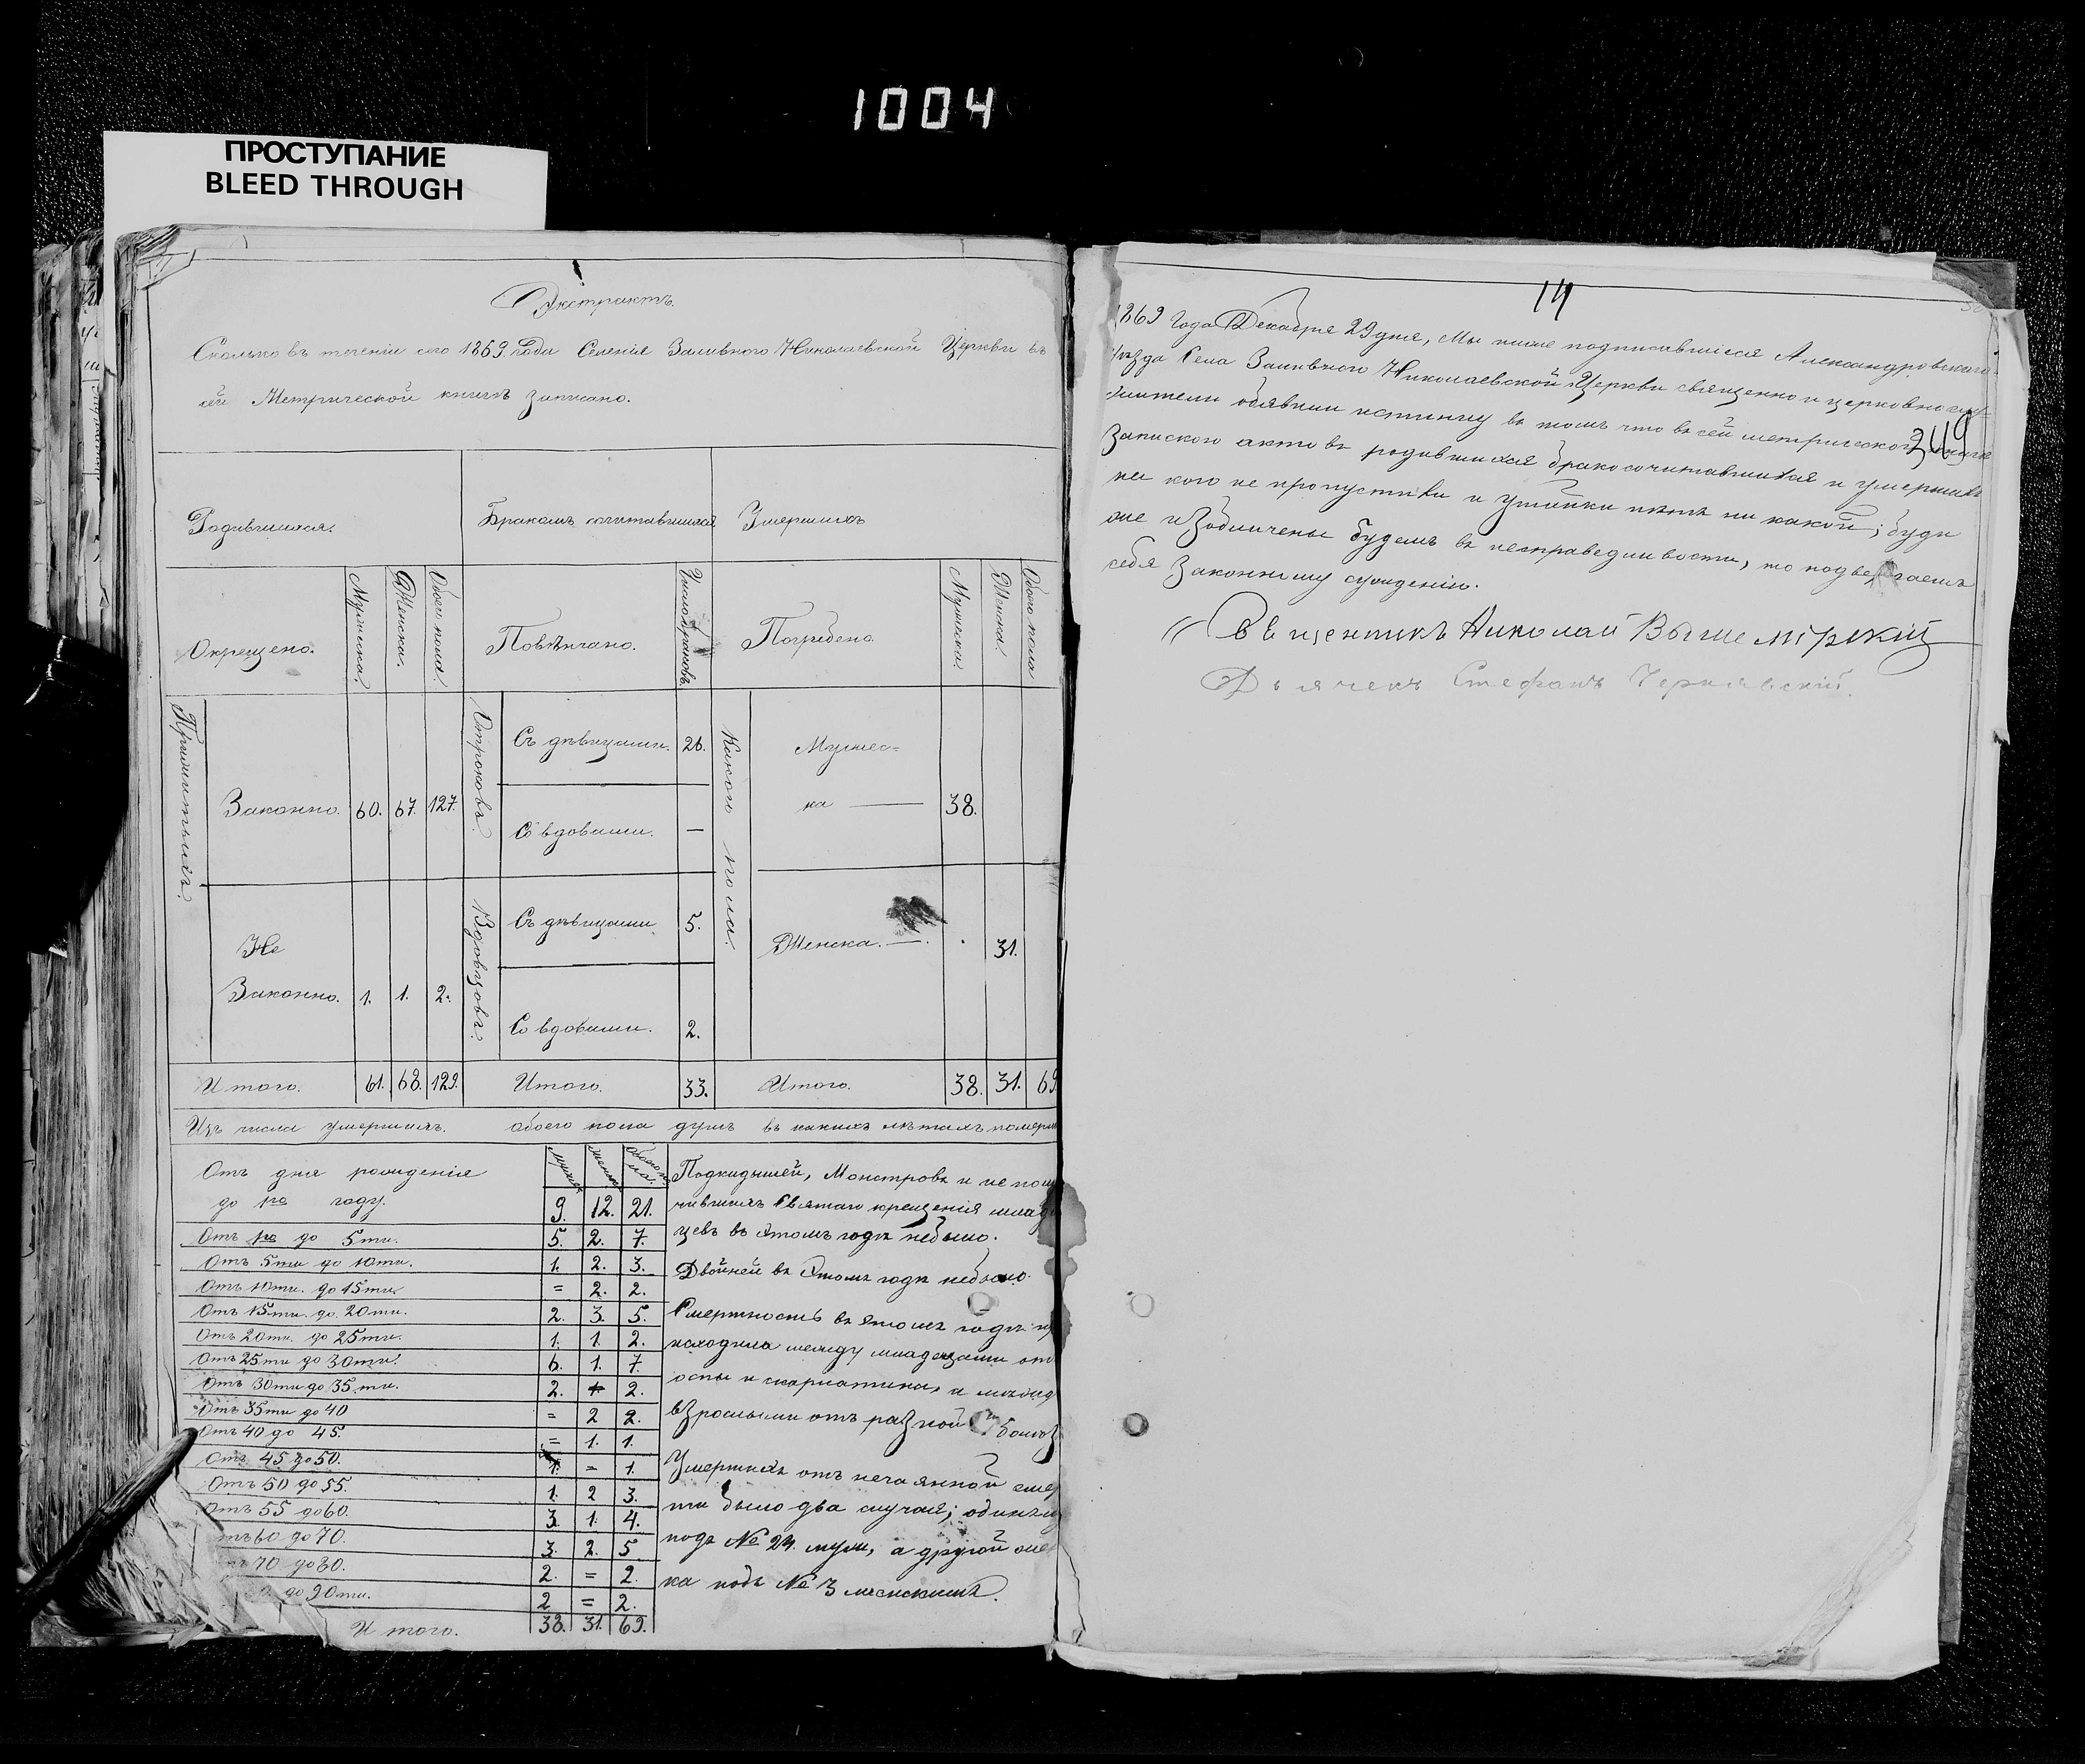 1004
ПРОСТУПАНИЕ
BLEED THROUGH
Экстрактъ.
Сколько въ теченіи сего 1869. года Селенія Заливного Николаевской Церкви въ
сей Метрической книгѣ записано.
Родившихся. Бракомъ сочитавшихся Умершихъ
Окрещено. Мужеска. Женска. Обоего пола. Повѣнчано. Число браковъ. Погребено. Мужеска. Женска. Обоего пола
Отроковъ. Съ дѣвицами. 26. Какого пола. Мужес=
Законно. 60. 67. 127. ка — 38.
Со вдовами. —
Вдовцовъ. Съ дѣвицами 5.
Не Женска. — 31.
Законно. 1. 1. 2. Со вдовами. 2.
Итого. 61. 68. 129. Итого. 33. Итого. 38. 31. 69
Изъ числа умершихъ. обоего пола душъ въ какихъ лѣтахъ
Отъ дня рожденія
до го году. 9. 12. 21.
Отъ го до 5ти. 5. 2. 7.
Отъ 5ти до 10ти. 1. 2. 3.
Отъ 10ти. до 15ти. = 2. 2.
Отъ 15ти. до. 20ти. 2. 3. 5.
Отъ 20ти. до 25ти. 1. 1. 2.
Отъ 25ти до 30ти. 6. 1. 7.
Отъ 30ти до 35.ти. 2. 2.
Отъ 35ти до 40 = 2 2.
Отъ 40 до 45. = 1. 1.
Отъ 45 до 50. 1. = 1.
Отъ 50 до 55. 1. 2 3.
Отъ 55 до 60. 3. 1. 4.
тъ 60 до 70. 3. 2. 5
70 до 80. 2. = 2.
до 90ти. 2 = 2.
Итого. 38. 31. 69.
Подкидышей, Монстровъ и не
чившихъ Святаго крещенія
цевъ въ этомъ годѣ небыло.
Двойней въ этомъ годѣ небыло.
Смертность въ этомъ годѣ
исходила между младенцами
оспы и скарлатины, и
взрослыми отъ разной
Умершихъ отъ нечаянной
ти было два случая;
подъ № 24. муж, а другой
ка подъ № 3 женскимъ.
14
1869 Года Декабря 29 дня, Мы ниже подписавшіеся Александровскаго
Уѣзда Села Заливного Николаевской Церкви священно и церковнослу-
жители объявили истинну въ томъ что въ сей метрической книгѣ
349
Запискою актовъ родившихся бракосочитавшихся и умершихъ
ни кого не пропустили и утайки нѣтъ ни какой; буди
же изобличены будемъ въ несправедливости, то подвергаемъ
себя Законному сужденію.
Священникъ Николай Вышемірскій
Дьячекъ Стефанъ Чернявскій.